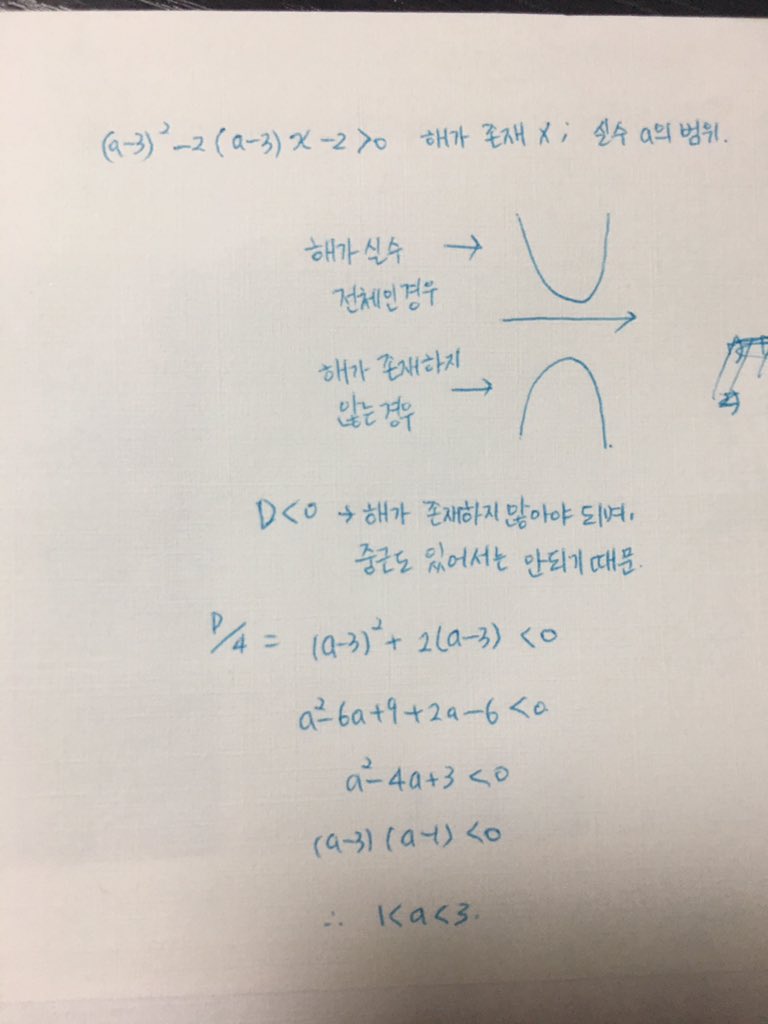 (a-3)² -2(a-3)x -2>0 해가 존재 X; 실수 a의 범위.
해가 실수 →
전체인 경우
해가 존재하지 →
않는 경우
D<0 → 해가 존재하지 않아야 되며,
중근도 있어서는 안되기 때문.
D/4 = (a-3)² + 2(a-3) <0
a²-6a+9+2a-6<0
a²-4a+3<0
(a-3)(a-1)<0
∴ 1<a<3.